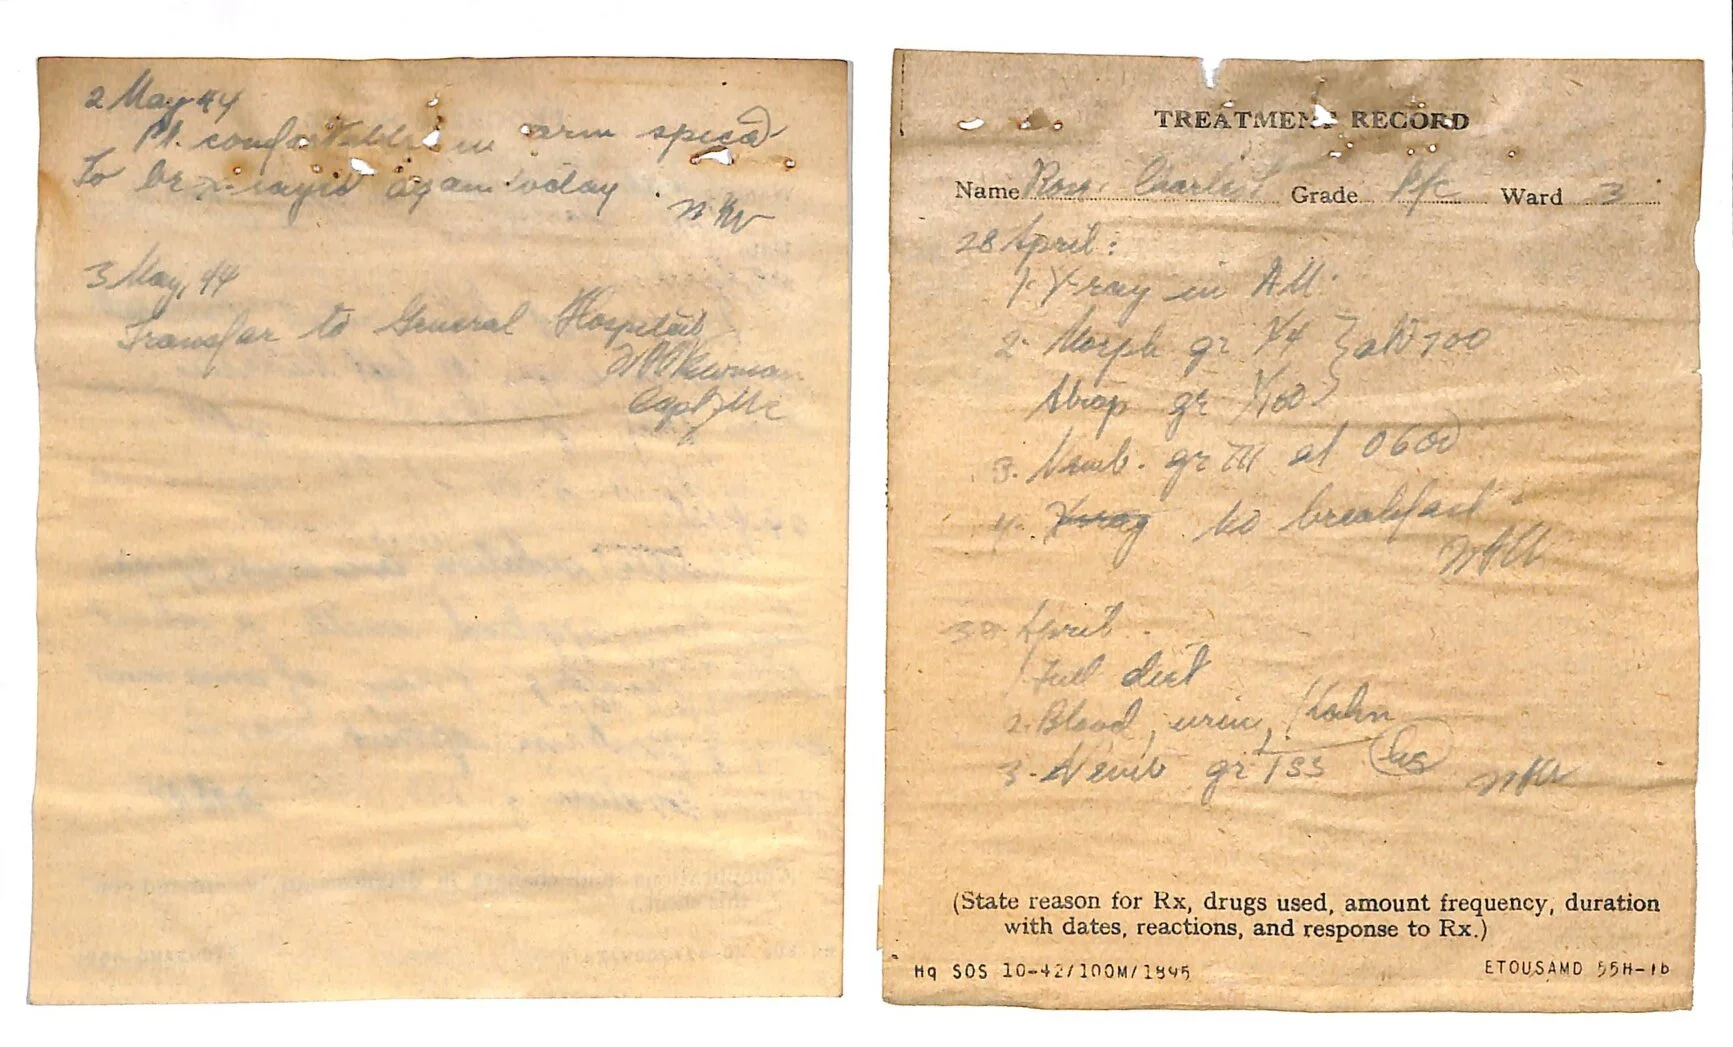 2 May 44
Pt. comfortable in arm spica
To be x-rayed again today.
3 May, 44
Transfer to General Hospital
Newman
Capt, MC
TREATMENT RECORD
Name Ross, Charles Grade Pfc Ward 3
28 April:
1. X-ray in AM.
2. Morph gr 1/4 } at 0700
Atrop gr 1/100
3. Nemb. gr III at 0600
4. Xray no breakfast
30 April
1 Full diet
2. Blood, urin, Kahn
3. Nemb gr iss hs
(State reason for Rx, drugs used, amount frequency, duration
with dates, reactions, and response to Rx.)
Hq SOS 10-42/100M/1895 ETOUSAMD 55H-1b